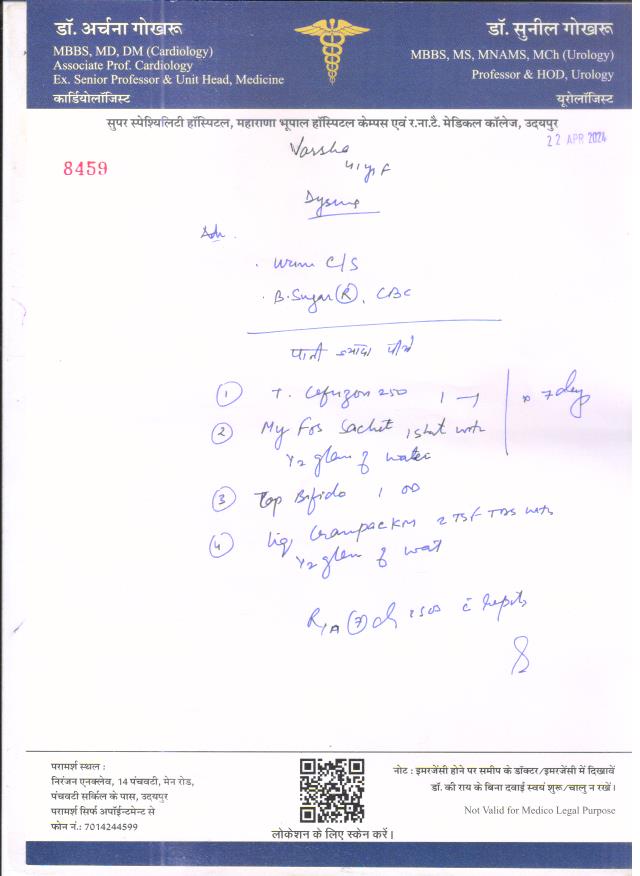 डॉ. अर्चना गोखरू
MBBS, MD, DM (Cardiology)
Associate Prof. Cardiology
Ex. Senior Professor & Unit Head, Medicine
कार्डियोलॉजिस्ट
डॉ. सुनील गोखरू
MBBS, MS, MNAMS, MCh (Urology)
Professor & HOD, Urology
यूरोलॉजिस्ट
सुपर स्पेश्यिलिटी हॉस्पिटल, महाराणा भूपाल हॉस्पिटल केम्पस एवं र.ना.टै. मेडिकल कॉलेज, उदयपुर
22 APR 2024
8459
Varsha
F
C/S
B. Sugar (R), CBC
पानी ज्यादा पीये
1 T. 250 1 — 1
7 day
2 My Fos Sachet with
1/2 glass of water
3 Bifido 1 OD
4 Liq. 2 TSF TDS with
1/2 glass of
परामर्श स्थल :
निरंजन एनक्लेव, 14 पंचवटी, मेन रोड,
पंचवटी सर्किल के पास, उदयपुर
परामर्श सिर्फ अपॉईन्टमेन्ट से
फोन नं.: 7014244599
लोकेशन के लिए स्केन करें।
नोट : इमरजेंसी होने पर समीप के डॉक्टर/इमरजेंसी में दिखावें
डॉ. की राय के बिना दवाई स्वयं शुरू/चालु न रखें।
Not Valid for Medico Legal Purpose